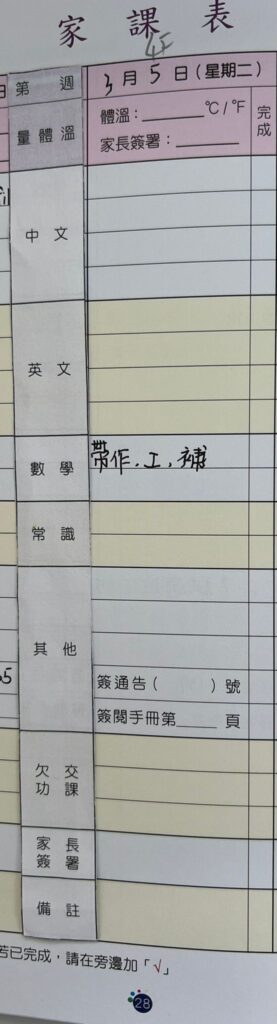 家課表
4F
第 週 3月5日(星期二)
量體溫 體溫:______°C/°F 完成
家長簽署:______
中文
英文
數學 帶作.工.補
常識
其他
簽通告( )號
簽閱手冊第____頁
欠交功課
家長簽署
備註
若已完成,請在旁邊加「√」
28